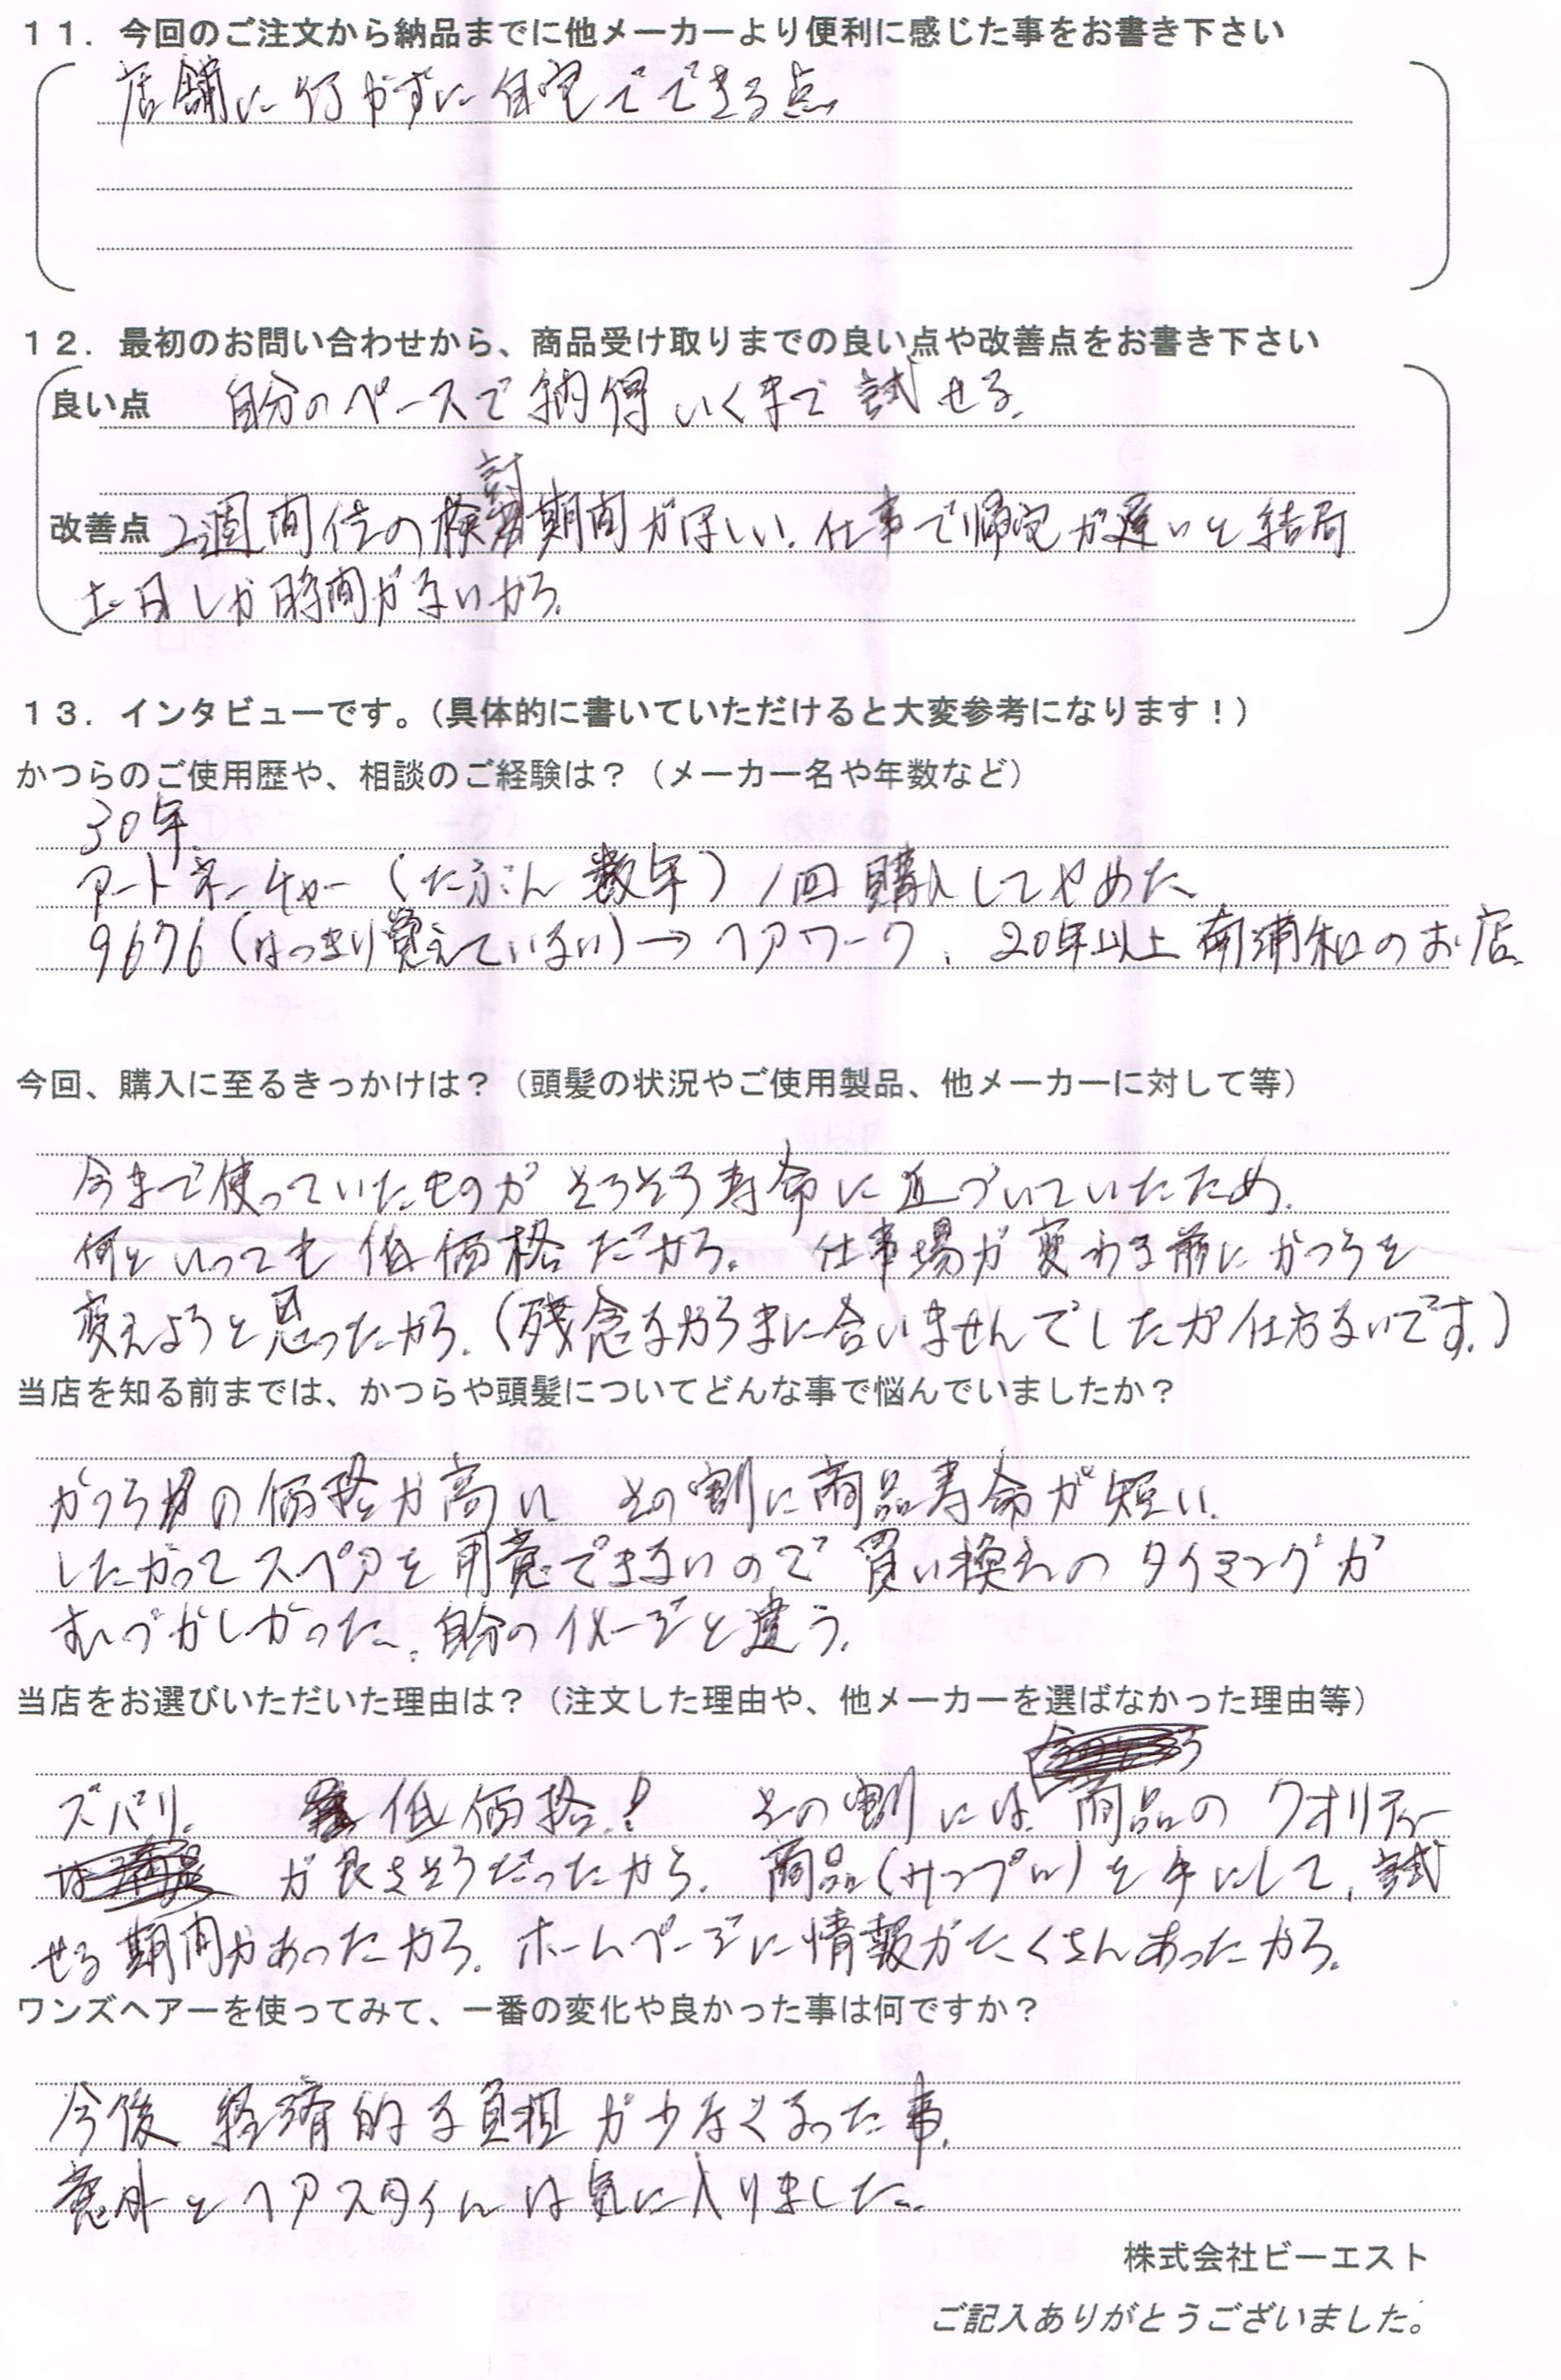 11．今回のご注文から納品までに他メーカーより便利に感じた事をお書き下さい
店舗に行かずに自宅でできる点
12．最初のお問い合わせから、商品受け取りまでの良い点や改善点をお書き下さい
良い点 自分のペースで納得いくまで試せる。
討
改善点 2週間位の検期間がほしい。仕事で帰宅が遅いと結局
土日しか時間がないから。
13．インタビューです。（具体的に書いていただけると大変参考になります！）
かつらのご使用歴や、相談のご経験は？（メーカー名や年数など）
30年。
アートネーチャー（たぶん数年）1回購入してやめた
9676（はっきり覚えていない）→ヘアワーク、20年以上南浦和のお店
今回、購入に至るきっかけは？（頭髪の状況やご使用製品、他メーカーに対して等）
今まで使っていたものがそろそろ寿命に近づいていたため。
何といっても低価格だから。仕事場が変わる前にかつらを
変えようと思ったから。（残念ながらまに合いませんでしたが仕方ないです。）
当店を知る前までは、かつらや頭髪についてどんな事で悩んでいましたか？
かつらの価格が高い その割に商品寿命が短い。
したがってスペアを用意できないので買い換えのタイミングが
むづかしかった。自分のイメージと違う。
当店をお選びいただいた理由は？（注文した理由や、他メーカーを選ばなかった理由等）
ズバリ。 低価格！ その割には商品のクオリティー
が良さそうだったから。商品（サンプル）を手にして、試
せる期間があったから。ホームページに情報がたくさんあったから。
ワンズヘアーを使ってみて、一番の変化や良かった事は何ですか？
今後経済的な負担が少なくなった事。
意外とヘアスタイルは気に入りました。
株式会社ビーエスト
ご記入ありがとうございました。